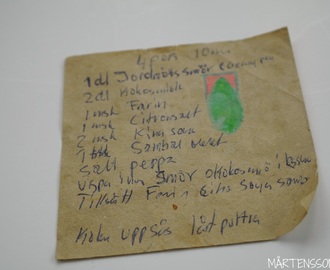 4 por 10 min
1 dl Jordnötssmör
2 dl Kokosmjölk
1 msk Farin
1 msk Citronsaft
2 msk Kin soja
1 tsk Sambal oelek
Salt peppa
Vispa ihop Smör o kokosmjö i
Tillsätt Farin Citr Soja Samb
Koka uppsås låt puttra
MÅRTENSSO